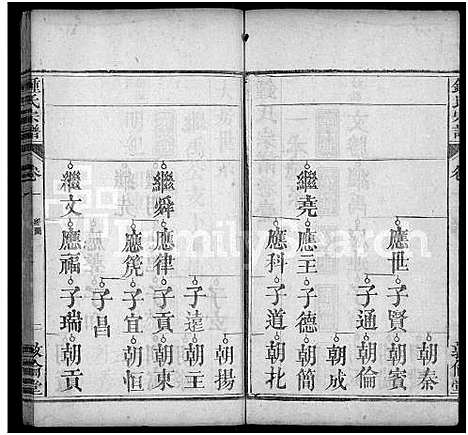 鍾氏宗譜
敦倫堂
朝秦
應世 子賢 朝賓
子通 朝倫
朝成
繼堯 應主 子德 朝簡
應科 子道 朝
朝揚
子達 朝王
繼舜 應律 子貢 朝東
應 子宜 朝恒
子昌
繼文 應福 子瑞 朝貢
鍾氏宗譜
卷
敦倫堂
FamilySearch